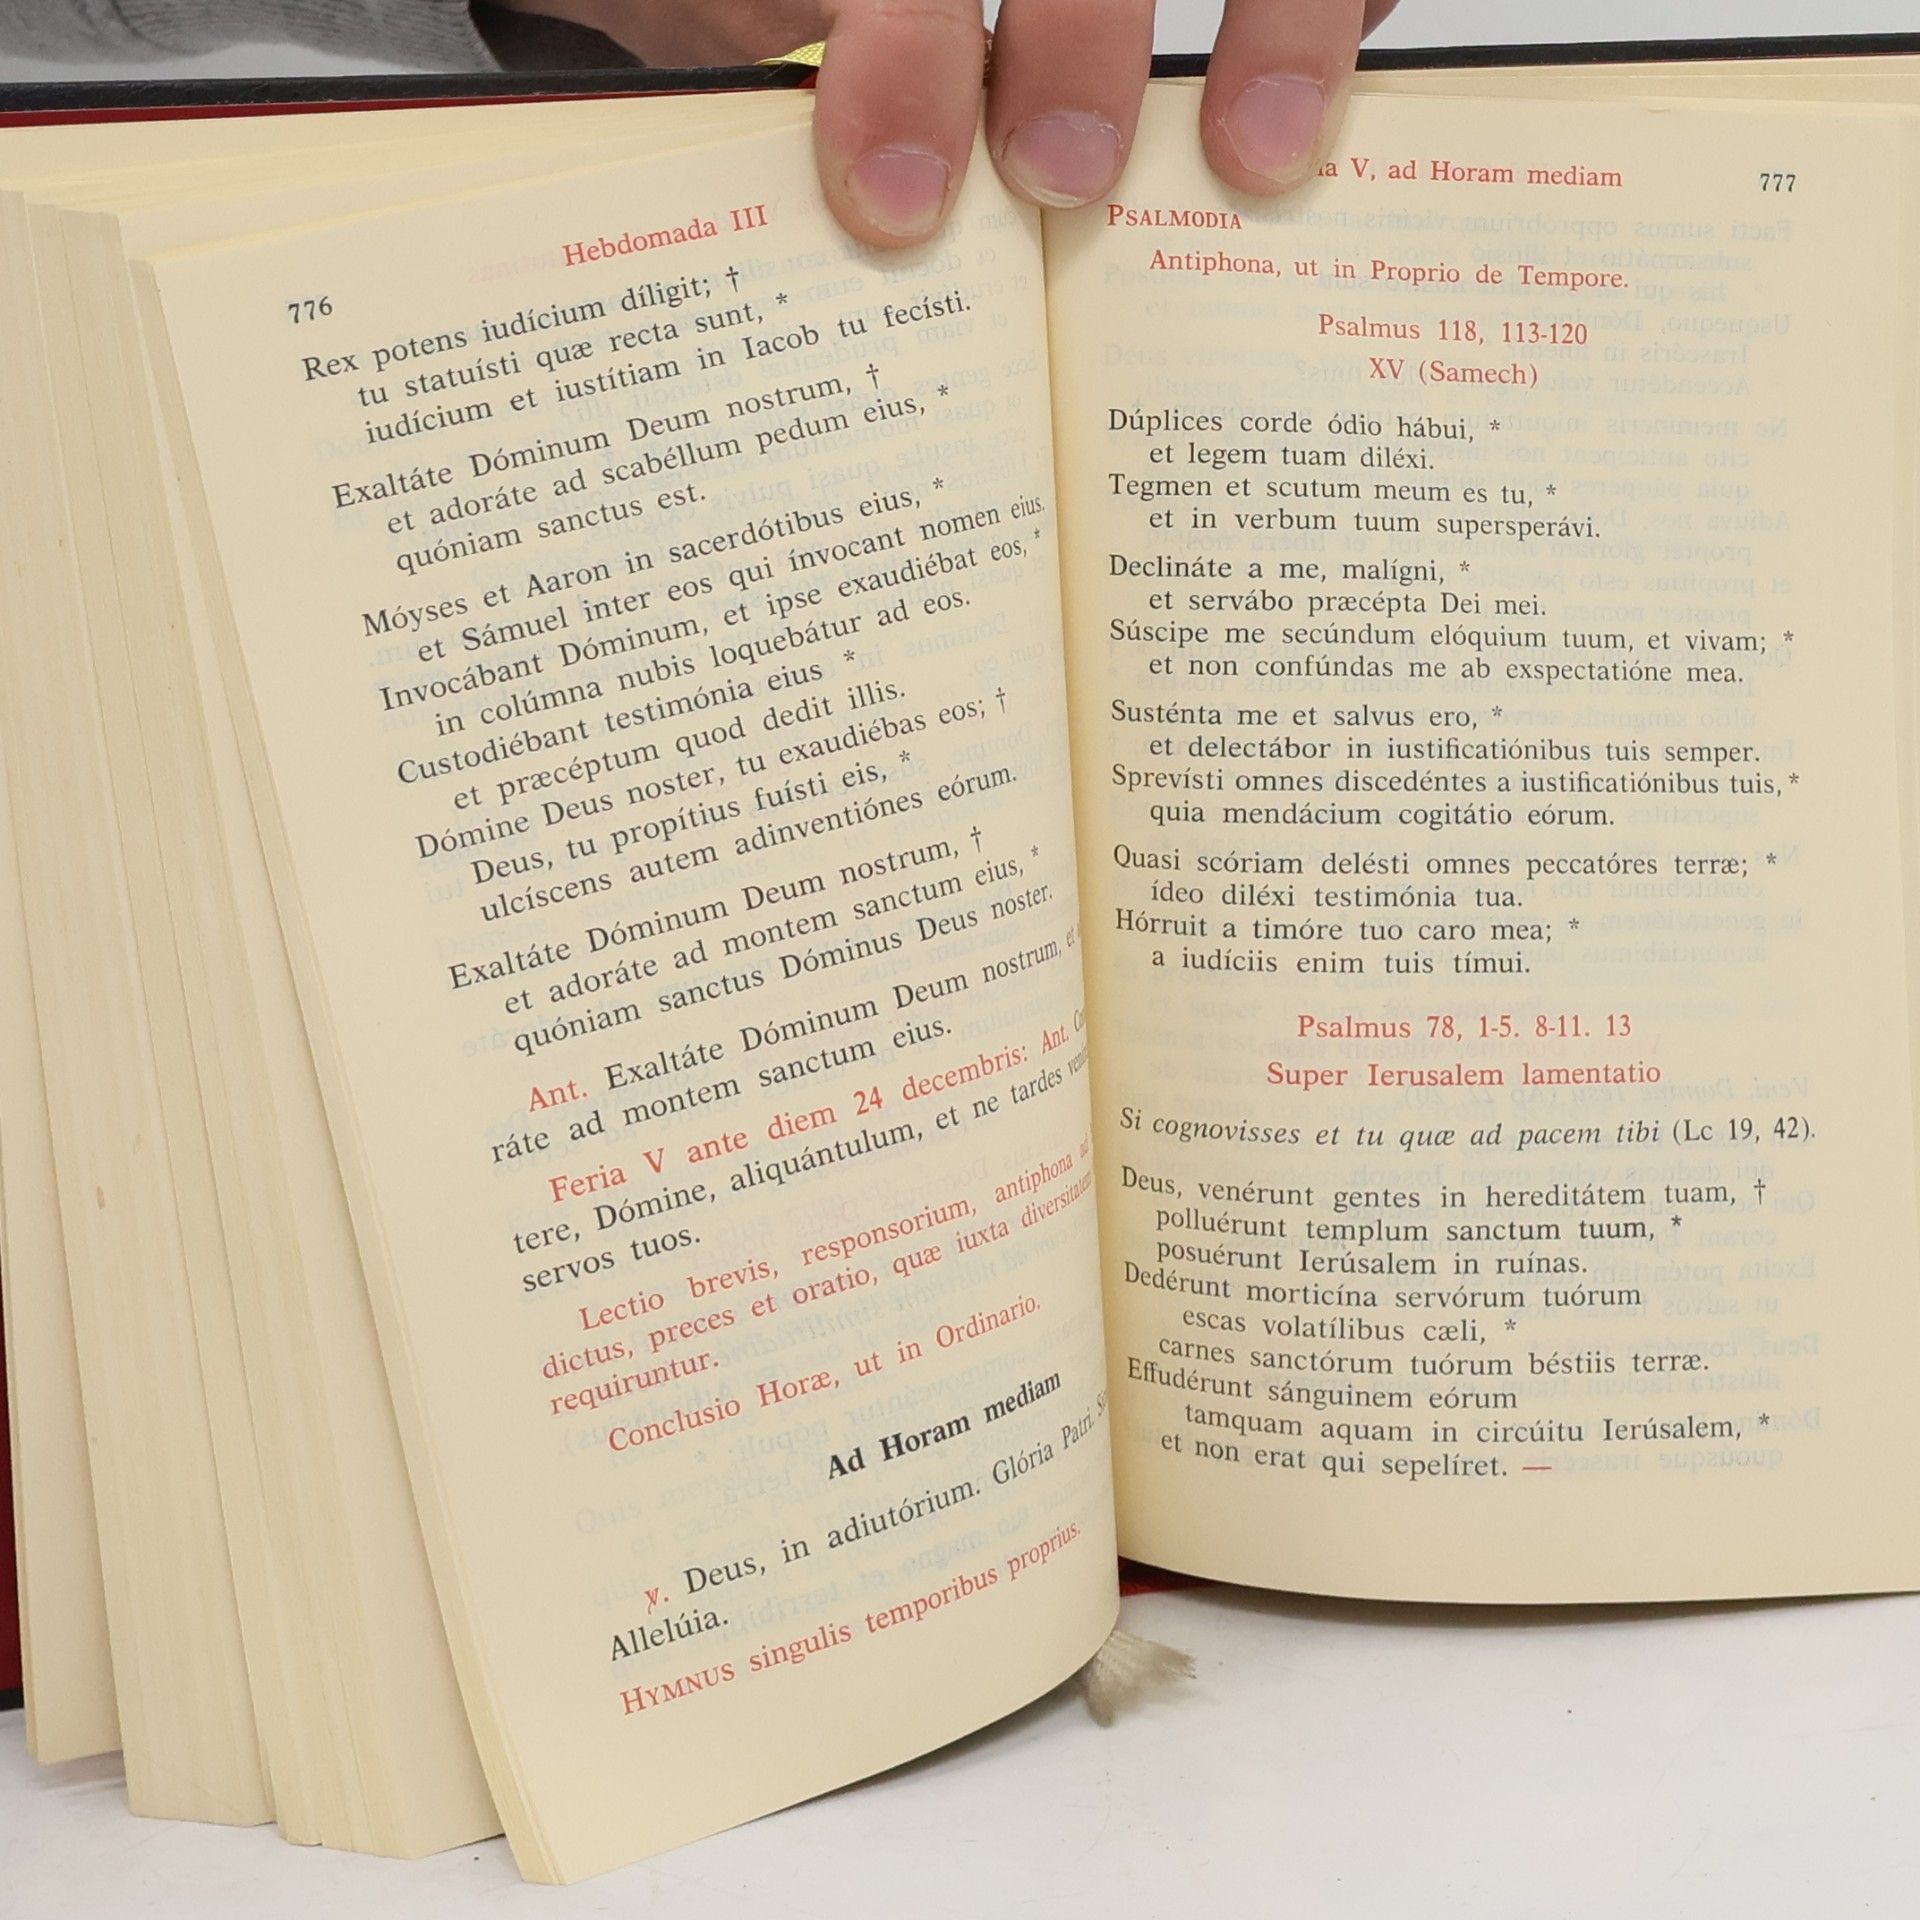 Hebdomada III
776
Rex potens iudícium díligit; †
tu statuísti quæ recta sunt, *
iudícium et iustítiam in Iacob tu fecísti.
Exaltáte Dóminum Deum nostrum, †
et adoráte ad scabéllum pedum eius, *
quóniam sanctus est.
Móyses et Aaron in sacerdótibus eius, *
et Sámuel inter eos qui ínvocant nomen eius.
Invocábant Dóminum, et ipse exaudiébat eos, *
in colúmna nubis loquebátur ad eos.
Custodiébant testimónia eius *
et præcéptum quod dedit illis.
Dómine Deus noster, tu exaudiébas eos; †
Deus, tu propítius fuísti eis, *
ulcíscens autem adinventiónes eórum.
Exaltáte Dóminum Deum nostrum, †
et adoráte ad montem sanctum eius, *
quóniam sanctus Dóminus Deus noster.
Ant. Exaltáte Dóminum Deum nostrum, et
ráte ad montem sanctum eius.
Feria V ante diem 24 decembris: Ant.
tere, Dómine, aliquántulum, et ne tardes
servos tuos.
Lectio brevis, responsorium, antiphona ad
dictus, preces et oratio, quæ iuxta diversitatem
requiruntur.
Conclusio Horæ, ut in Ordinario.
Ad Horam mediam
℣. Deus, in adiutórium. Glória Patri.
Allelúia.
HYMNUS singulis temporibus proprius.
V, ad Horam mediam
777
PSALMODIA
Antiphona, ut in Proprio de Tempore.
Psalmus 118, 113-120
XV (Samech)
Dúplices corde ódio hábui, *
et legem tuam diléxi.
Tegmen et scutum meum es tu, *
et in verbum tuum supersperávi.
Declináte a me, malígni, *
et servábo præcépta Dei mei.
Súscipe me secúndum elóquium tuum, et vivam; *
et non confúndas me ab exspectatióne mea.
Susténta me et salvus ero, *
et delectábor in iustificatiónibus tuis semper.
Sprevísti omnes discedéntes a iustificatiónibus tuis, *
quia mendácium cogitátio eórum.
Quasi scóriam delésti omnes peccatóres terræ; *
ídeo diléxi testimónia tua.
Hórruit a timóre tuo caro mea; *
a iudíciis enim tuis tímui.
Psalmus 78, 1-5. 8-11. 13
Super Ierusalem lamentatio
Si cognovisses et tu quæ ad pacem tibi (Lc 19, 42).
Deus, venérunt gentes in hereditátem tuam, †
polluérunt templum sanctum tuum, *
posuérunt Ierúsalem in ruínas.
Dedérunt morticína servórum tuórum
escas volatílibus cæli, *
carnes sanctórum tuórum béstiis terræ.
Effudérunt sánguinem eórum
tamquam aquam in circúitu Ierúsalem, *
et non erat qui sepelíret. —